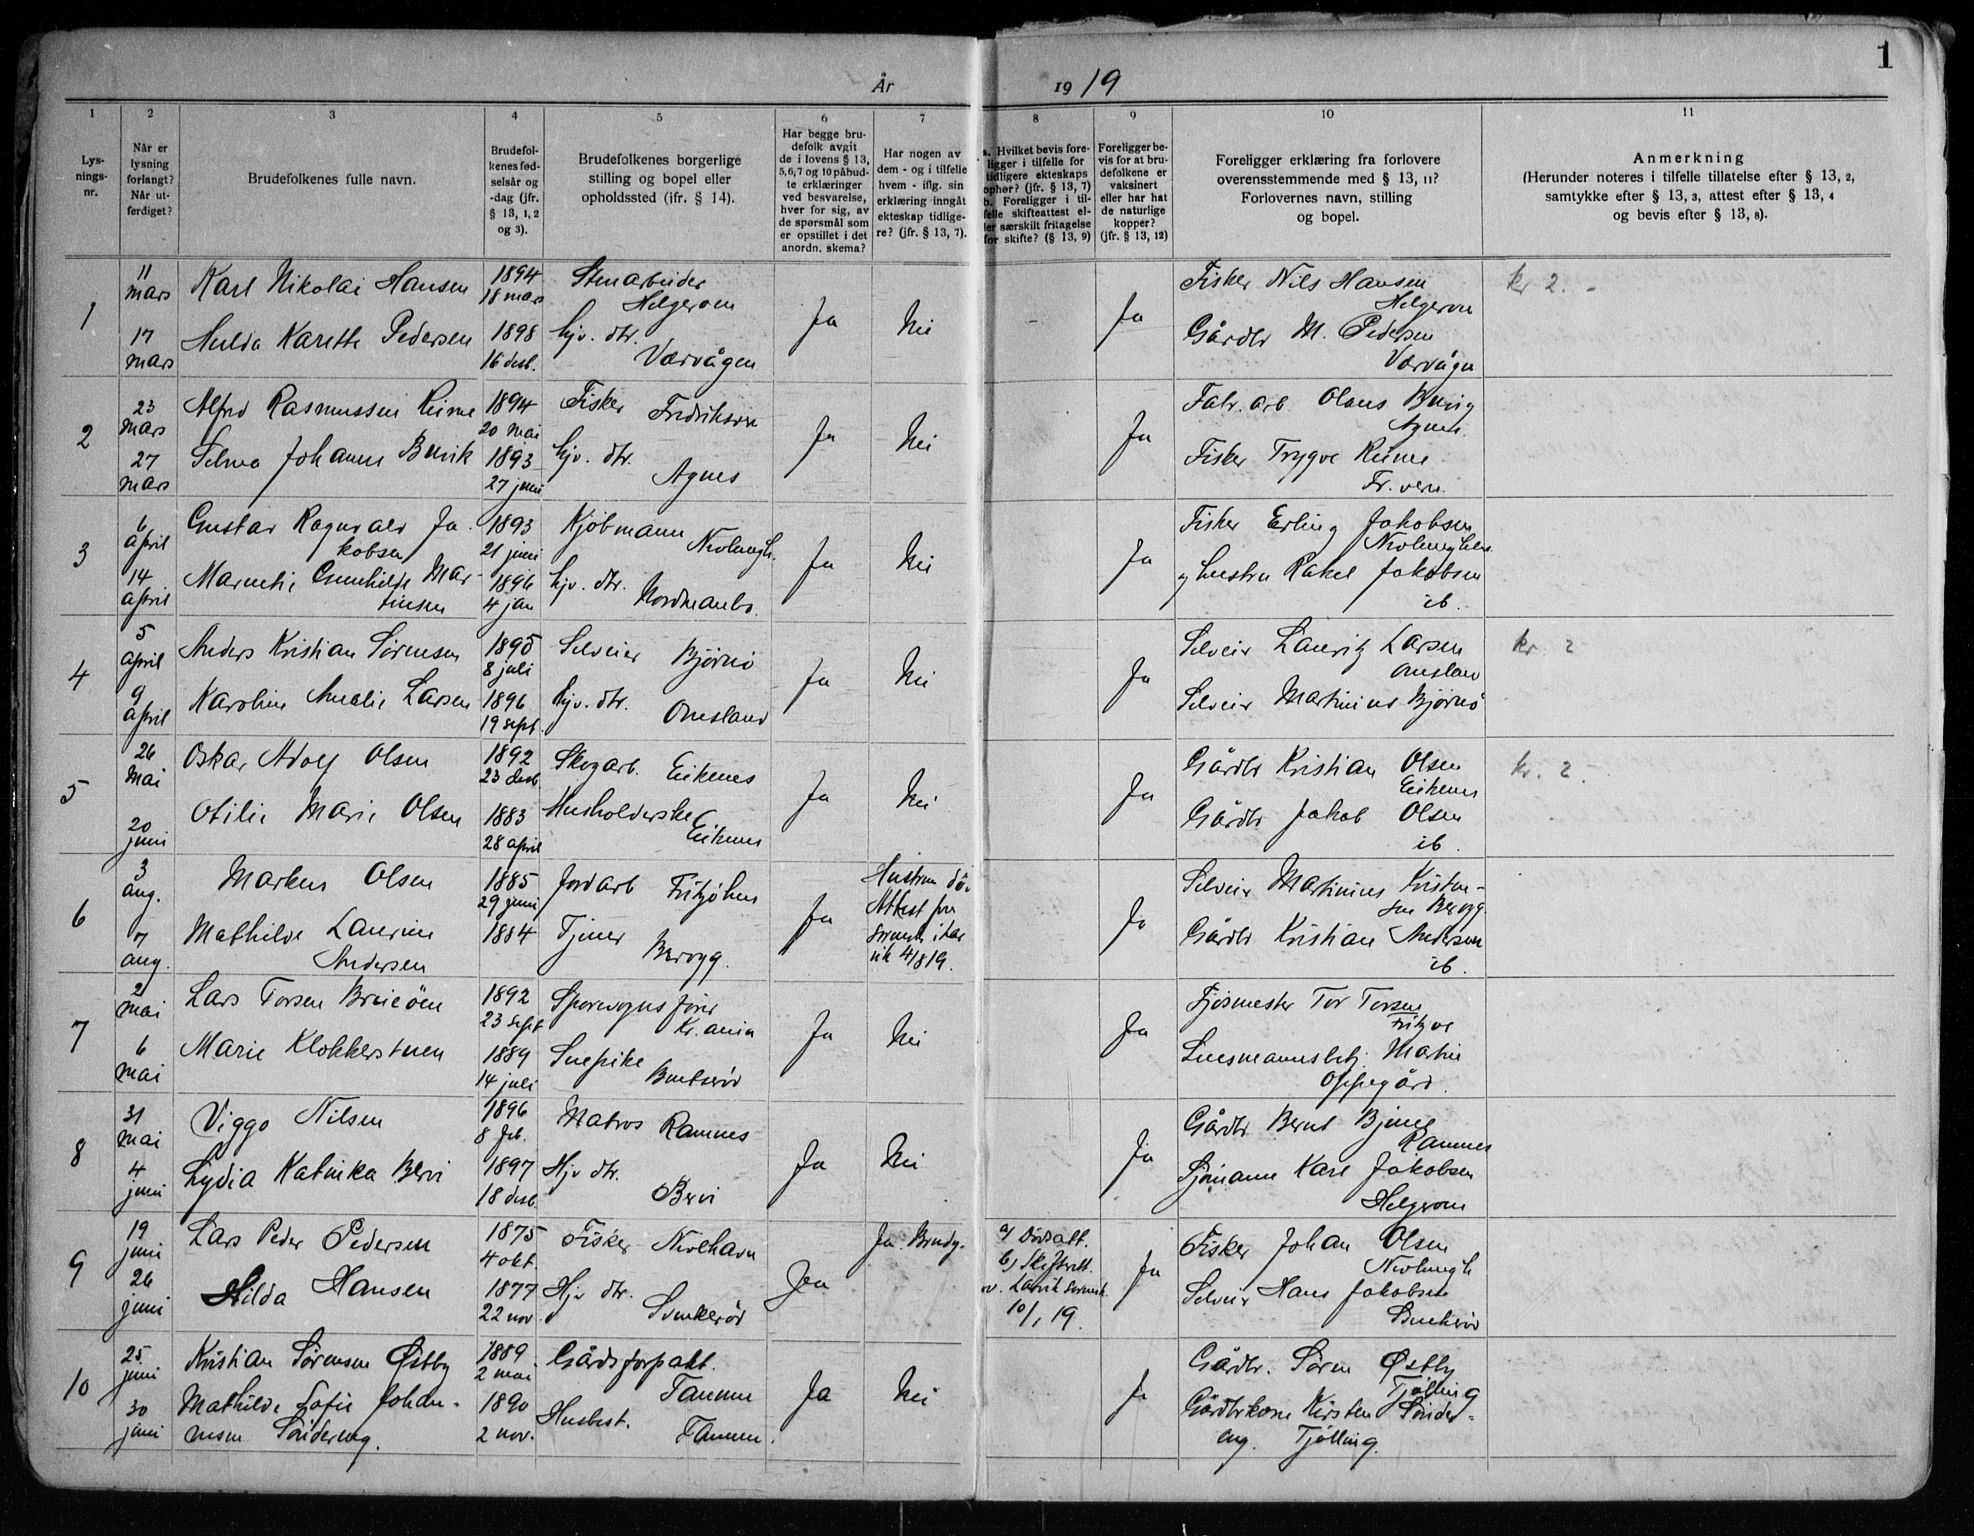 1
År 1919
1 2 3 4 5 6 7 8 9 10 11
Lys-
nings-
nr.
Når er
lysning
forlangt?
Når ut-
ferdiget?
Brudefolkenes fulle navn.
Brudefol-
kenes fød-
selsår og
-dag (jfr.
§ 13, 1, 2
og 3).
Brudefolkenes borgerlige
stilling og bopel eller
opholdssted (ifr. § 14).
Har begge bru-
defolk avgit
de i lovens § 13,
5,6,7 og 10 påbud-
te erklæringer
ved besvarelse,
hver for sig, av
de spørsmål som
er opstillet i det
anordn. skema?
Har nogen av
dem - og i tilfelle
hvem - iflg. sin
erklæring inngåt
ekteskap tidlige-
re? (jfr. § 13, 7).
a. Hvilket bevis fore-
ligger i tilfelle for
tidligere ekteskaps
ophør? (jfr. § 13, 7)
b. Foreligger i til-
felle skifteattest el-
ler særskilt fritagelse
for skifte? (§ 13, 9)
Foreligger be-
vis for at bru-
defolkene er
vaksinert
eller har hat
de naturlige
kopper?
(jfr. § 13, 12)
Foreligger erklæring fra forlovere
overensstemmende med § 13, 11?
Forlovernes navn, stilling
og bopel.
Anmerkning
(Herunder noteres i tilfelle tillatelse efter § 13, 2,
samtykke efter § 13, 3, attest efter § 13, 4
og bevis efter § 13, 8).
1
11 mars
17 mars
Karl Nikolai Hansen 1894 18 mars Stenarbeider Helgerom
Hulda Karethe Pedersen 1898 16 desb. hjv. dtr. Værvågen
Ja Nei - Ja
Fisker Nils Hansen
Helgerom
Gårdbr M. Pedersen
Værvågen
kr 2. -
2
23 mars
27 mars
Alfred Rasmussen 1894 20 mai Fisker Fredriksvern
Selma Johanne 1893 27 juni hjv. dtr. Agnes
Ja Nei Ja
Fabr. arb Olaus
Agnes
Fisker Trygve
Fr. vern.
3
6 april
14 april
Gustav Ragnvald Ja-
kobsen 1893 21 juni Kjøbmann
Gunhilde Mar-
tinsen 1896 4 jan hjv. dtr.
Ja Nei Ja
Fisker Erling Jakobsen
Rakel Jakobsen
ib.
4
5 april
9 april
Anders Kristian Sørensen 1895 8 juli Selveier Bjørnø
Karoline Amalie Larsen 1896 19 sept. hjv. dtr. Omsland
Ja Nei Ja
Selveier Lauritz Larsen
Omsland
Selveier Martinius Bjørnø
kr. 2
5
26 Mai
20 juni
Oskar Adolf Olsen 1892 23 desb. Skogarb. Eikenes
Otilie Marie Olsen 1883 28 april Husholderske Eikenes
Ja Nei Ja
Gårdbr Kristian Olsen
Eikenes
Gårdbr Jakob Olsen
ib.
kr. 2.
6
3 aug.
7 aug.
Markus Olsen 1885 29 juni Jordarb
Mathilde Laurine
Andersen 1884 Tjener
Ja
Hustrun dö.
Attest fra
4/8 19.
Ja
Selveier Martinius Kristen-
sen
Gårdbr Kristian Andersen
ib.
7
2 mai
6 mai
Lars Torsen 1892 23 sept Sporvognsfører Kr.ania
Marie Klokkerstuen 1889 14 juli
Ja Nei Ja
Fjøsmester Tor Torsen
Martin
Oppegård.
8
31 mai
4 juni
Viggo Nilsen 1896 8 feb. Matros Ramnes
Lydia Katinka Bervi 1897 18 desb. Hjv dtr. Bervi
Ja Nei Ja
Gårdbr Bernt
Ramnes
Sjømann Karl Jakobsen
Helgerom
9
19 juni
26 juni
Lars Peder Pedersen 1875 4 okt. Fisker Nevlhavn
Hilda Hansen 1877 22 nov. Hjv dtr.
Ja
Ja. Brudg.
a) Dødsatt.
b) Skifteatt.
10/1 19.
Ja
Fisker Johan Olsen
Selveier Hans Jakobsen
10
25 juni
30 juni
Kristian Sørensen Østby 1889 2 mai Gårdsforpakt. Tammen
Mathilde Sofie Johan-
nesen 1890 2 nov. Husbest. Tammen.
Ja Nei Ja
Gårdbr. Søren Østby
Tjølling
Gårdbrkone Kirsten Sønder-
eng. Tjølling.